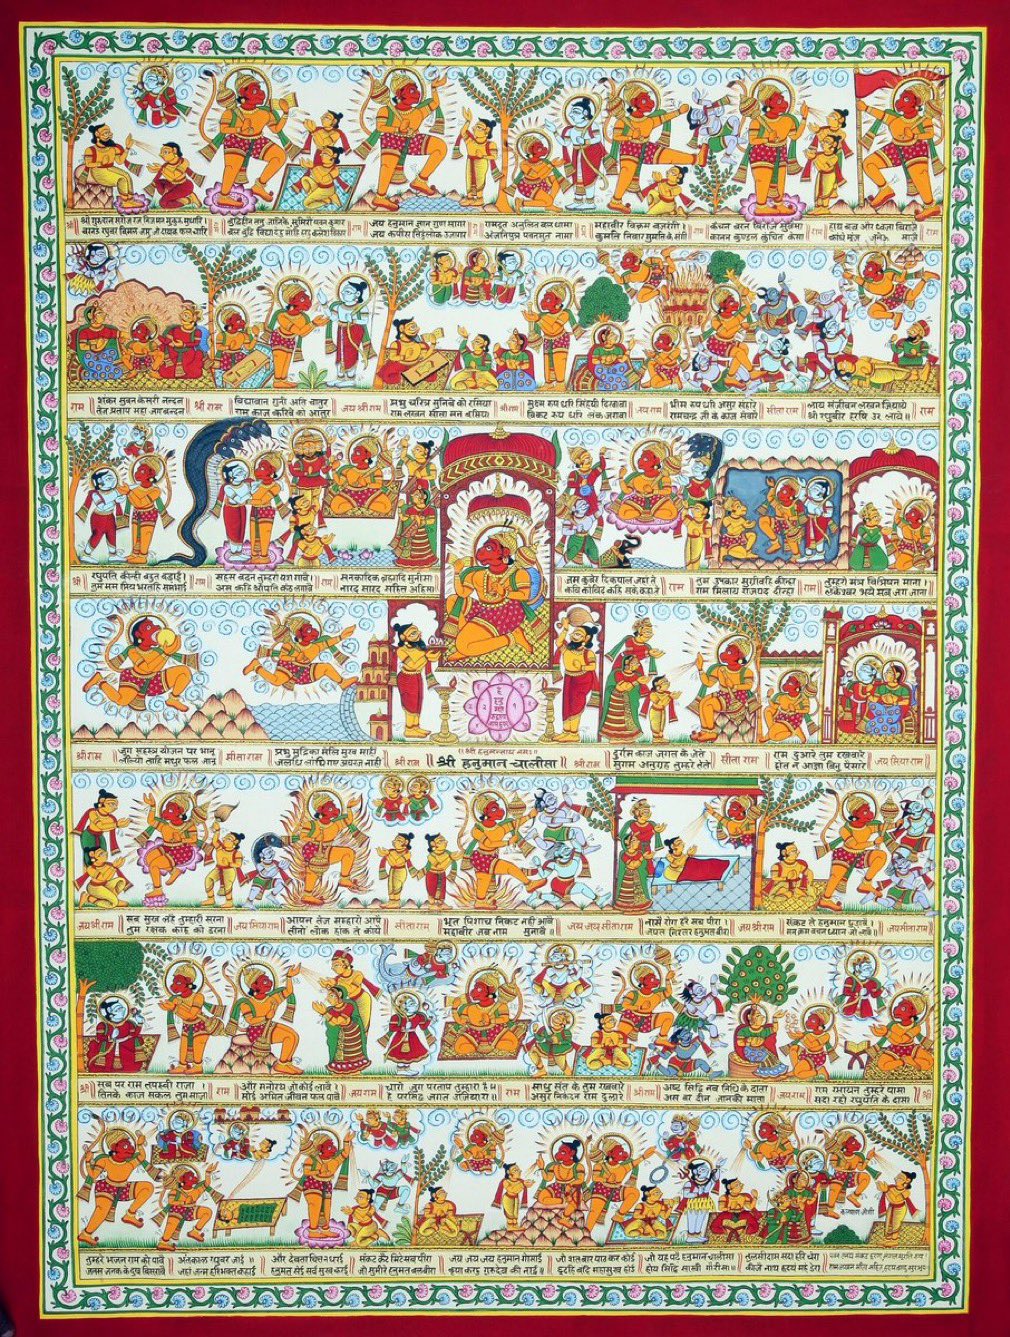 श्री गुरु चरन सरोज रज निज मन मुकुर सुधारि ।
बरनउं रघुबर बिमल जसु जो दायक फल चारि
बुद्धिहीन तनु जानिके सुमिरौं पवन कुमार
बल बुद्धि विद्या देहु मोहि हरहु कलेश विकार
जय हनुमान ज्ञान गुण सागर
जय कपीस तिहुं लोक उजागर
रामदूत अतुलित बल धामा
अंजनिपुत्र पवनसुत नामा
महाबीर विक्रम बजरंगी ।
कुमति निवार सुमति के संगी
कंचन बरन बिराज सुबेसा
कानन कुण्डल कुंचित केसा
हाथ बज्र और ध्वजा बिराजे
कांधे मूंज जनेऊ साजे
राम
शंकर सुवन केसरी नन्दन
तेज प्रताप महा जगबन्दन
श्री राम
विद्यावान गुनी अति चातुर
राम काज करिबे को आतुर
जय श्री राम
प्रभु चरित्र सुनिबे को रसिया
राम लखन सीता मन बसिया
श्री राम
सूक्ष्म रूप धरि सियहिं दिखावा
विकट रूप धरि लंक जरावा
जय राम
भीम रूप धरि असुर संहारे
रामचन्द्र जी के काज संवारे
सीता राम
लाय संजीवन लखन जियाये
श्री रघुबीर हरषि उर लाये ॥
राम
श्री
रघुपति कीन्ही बहुत बड़ाई ।
तुम मम प्रिय भरतहि सम भाई
राम
सहस बदन तुम्हरो यश गावें ।
अस कहि श्रीपति कंठ लगावें
राम
सनकादिक ब्रह्मादि मुनीसा ।
नारद सारद सहित अहिसा ।
जम कुबेर दिकपाल जहां ते
कबि कोविद कहि सके कहां ते
राम
तुम उपकार सुग्रीवहिं कीन्हा
राम मिलाय राजपद दीन्हा
राम
तुम्हरो मंत्र विभिषन माना ।
लंकेश्वर भये सब जग जाना ॥
श्री राम
जुग सहस्त्र योजन पर भानू
लील्यो ताहि मधुर फल जानू
सीता राम
प्रभु मुद्रिका मेलि मुख माहीं
जलधि लांघि गए अचरज नाहीं
श्री राम
॥ श्री हनुमन्ताय नमः ॥
॥ श्री हनुमान चालीसा ॥
श्री राम
दुर्गम काज जगत के जेते
सुगम अनुग्रह तुम्हरे तेते
सीता राम
राम दुआरे तुम रखवारे
होत न आज्ञा बिनु पैसारे
जय सिया राम
जय श्री राम
सब सुख लहै तुम्हारी सरना
तुम रक्षक काहू को डरना
जय सिया राम
आपन तेज सम्हारो आपै
तीनों लोक हांक ते कांपै
सीता राम
भूत पिशाच निकट नहीं आवे
महाबीर जब नाम सुनावे ॥
जय जय सीता राम
नासै रोग हरै सब पीरा ।
जपत निरंतर हनुमत बीरा
जय श्री राम
संकट ते हनुमान छुड़ावे ।
मन क्रम बचन ध्यान जो लावे ॥
जय सीता राम
श्री
सब पर राम तपस्वी राजा ।
तिनके काज सकल तुम साजा
राम
और मनोरथ जो कोई लावे ।
सोई अमित जीवन फल पावे
जय राम
चारों जुग परताप तुम्हारा
है परसिद्ध जगत उजियारा ॥
राम
साधु संत के तुम रखवारे
असुर निकंदन राम दुलारे
श्री राम
अष्ट सिद्धि नव निधि के दाता
अस बर दीन जानकी माता
जय राम
राम रसायन तुम्हरे पासा
सदा रहो रघुपति के दासा ॥
श्री
कल्याण जोशी
तुम्हरे भजन राम को पावे
जनम जनम के दुख बिसरावे
अंतकाल रघुबर जाई ॥
जहां जन्म हरिभक्त कहाई
और देवता चित्त न धरई
हनुमत सेई सर्व सुख करई
संकट कटै मिटै सब पीरा
जो सुमिरै हनुमत बलबीरा
जय जय जय हनुमान गोसाई
कृपा करहु गुरुदेव की नाई ॥
जो शत बार पाठ कर कोई
छूटहि बंदि महासुख होई
जो यह पढै हनुमान चालीसा ।
होय सिद्धि साखी गौरीसा ॥
तुलसीदास सदा हरि चेरा
कीजै नाथ हृदय मंह डेरा
पवन तनय संकट हरण मंगल मूरति रूप
राम लखन सीता सहित हृदय बसहु सुर भूप